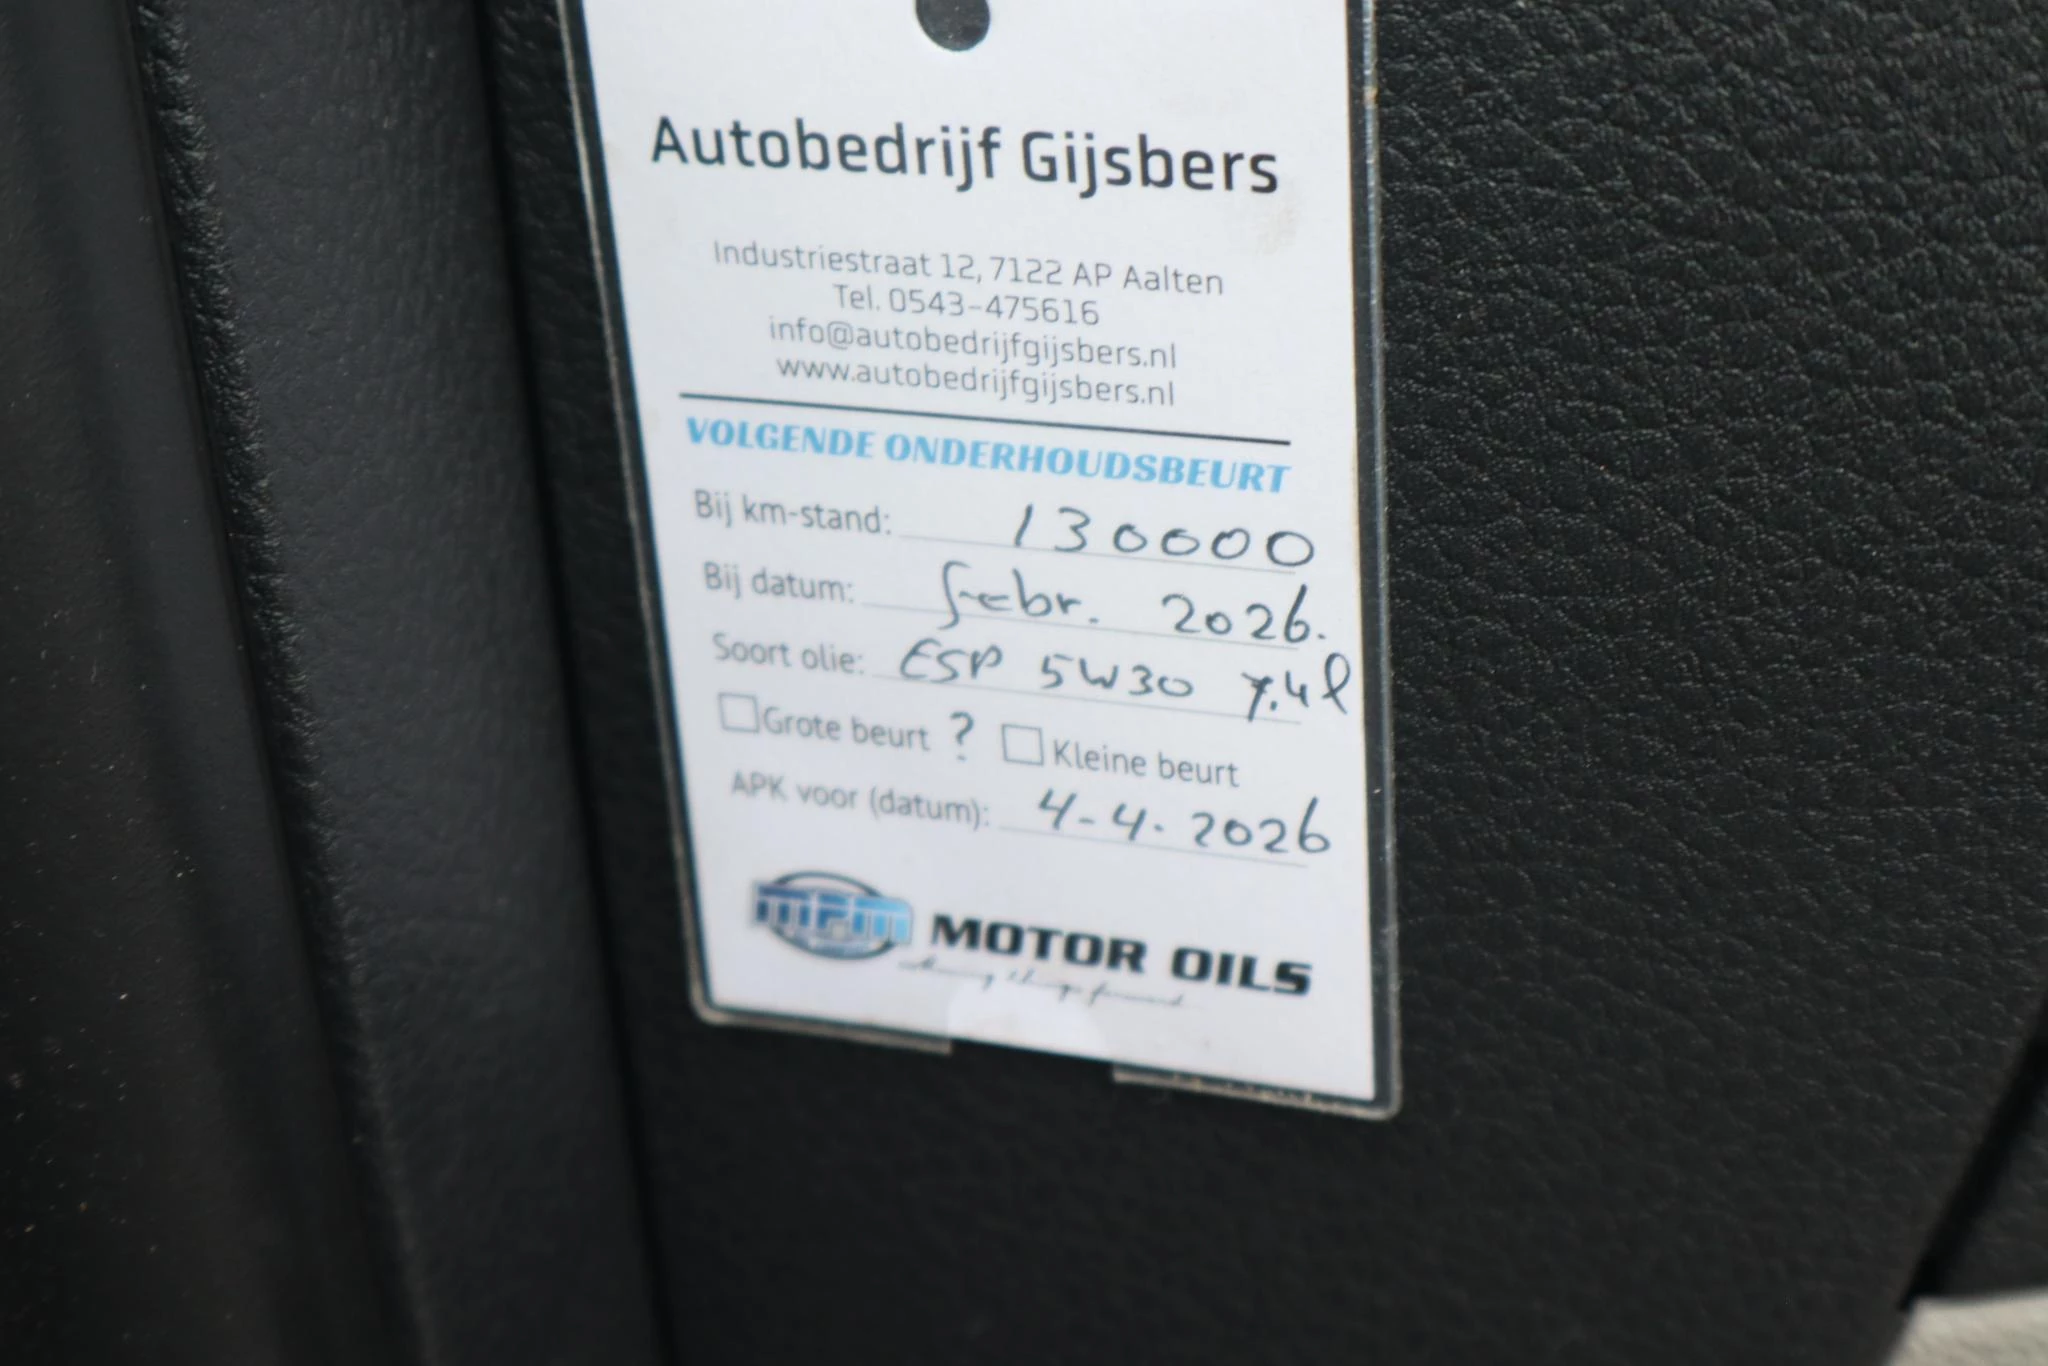 Autobedrijf Gijsbers
Industriestraat 12, 7122 AP Aalten
Tel. 0543-475616
info@autobedrijfgijsbers.nl
www.autobedrijfgijsbers.nl
VOLGENDE ONDERHOUDSBEURT
Bij km-stand: 130000
Bij datum: febr. 2026.
Soort olie: ESP 5W30 7.4l
Grote beurt ? Kleine beurt
APK voor (datum): 4-4-2026
MPM MOTOR OILS